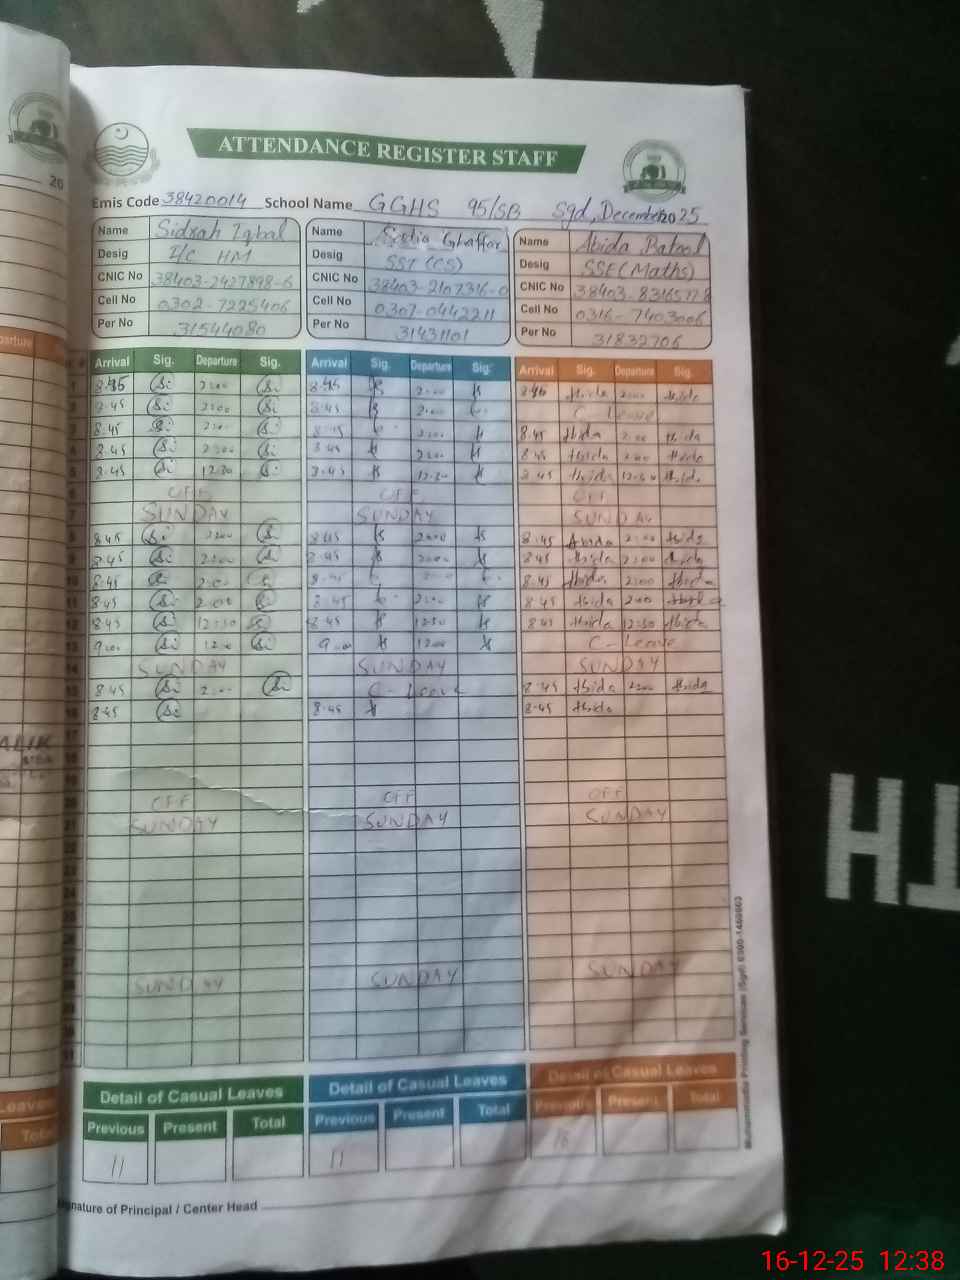 ATTENDANCE REGISTER STAFF
20
Emis Code 38420014 School Name GGHS 95/SB Sgd, December 2025
Name Sidrah Iqbal Name Sadia Ghaffar Name Abida Batool
Desig I/C HM Desig SST (CS) Desig SSE (Maths)
CNIC No 38403-2427898-6 CNIC No 38403-2107316-0 CNIC No 38403-8316517 8
Cell No 0302-7225406 Cell No 0307-0442211 Cell No 0316-7403006
Per No 31544080 Per No 31431101 Per No 31832706
Arrival Sig. Departure Sig. Arrival Sig. Departure Sig. Arrival Sig. Departure Sig.
8:45 Si 2:00 Si 8:45 2:00 8:45 Abida 2:00 Abida
8:45 Si 2:00 Si 8:45 2:00 C-Leave
8:45 Si 2:00 Si 8:45 2:00 8:45 Abida 2:00 Abida
8:45 Si 2:00 Si 8:45 2:00 8:45 Abida 2:00 Abida
8:45 Si 12:30 Si 8:45 12:30 8:45 Abida 12:30 Abida
OFF OFF OFF
SUNDAY SUNDAY SUNDAY
8:45 Si 2:00 Si 8:45 2:00 8:45 Abida 2:00 Abida
8:45 Si 2:00 Si 8:45 2:00 8:45 Abida 2:00 Abida
8:45 Si 2:00 Si 8:45 2:00 8:45 Abida 2:00 Abida
8:45 Si 2:00 Si 8:45 2:00 8:45 Abida 2:00 Abida
8:45 Si 12:30 Si 8:45 12:30 8:45 Abida 12:30 Abida
9:00 Si 12:00 Si 9:00 12:00 C-Leave
SUNDAY SUNDAY SUNDAY
8:45 Si 2:00 Si C-Leave 8:45 Abida 2:00 Abida
8:45 Si 8:45 8:45 Abida
OFF OFF OFF
SUNDAY SUNDAY SUNDAY
SUNDAY SUNDAY SUNDAY
Detail of Casual Leaves Detail of Casual Leaves Detail of Casual Leaves
Previous Present Total Previous Present Total Previous Present Total
11 11
Signature of Principal / Center Head
16-12-25 12:38
TH